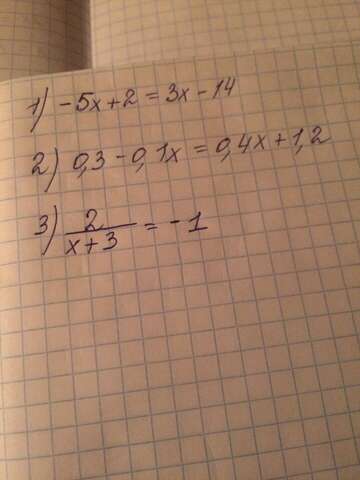 1) -5x+2=3x-14
2) 0,3-0,1x=0,4x+1,2
3) 2/(x+3) = -1